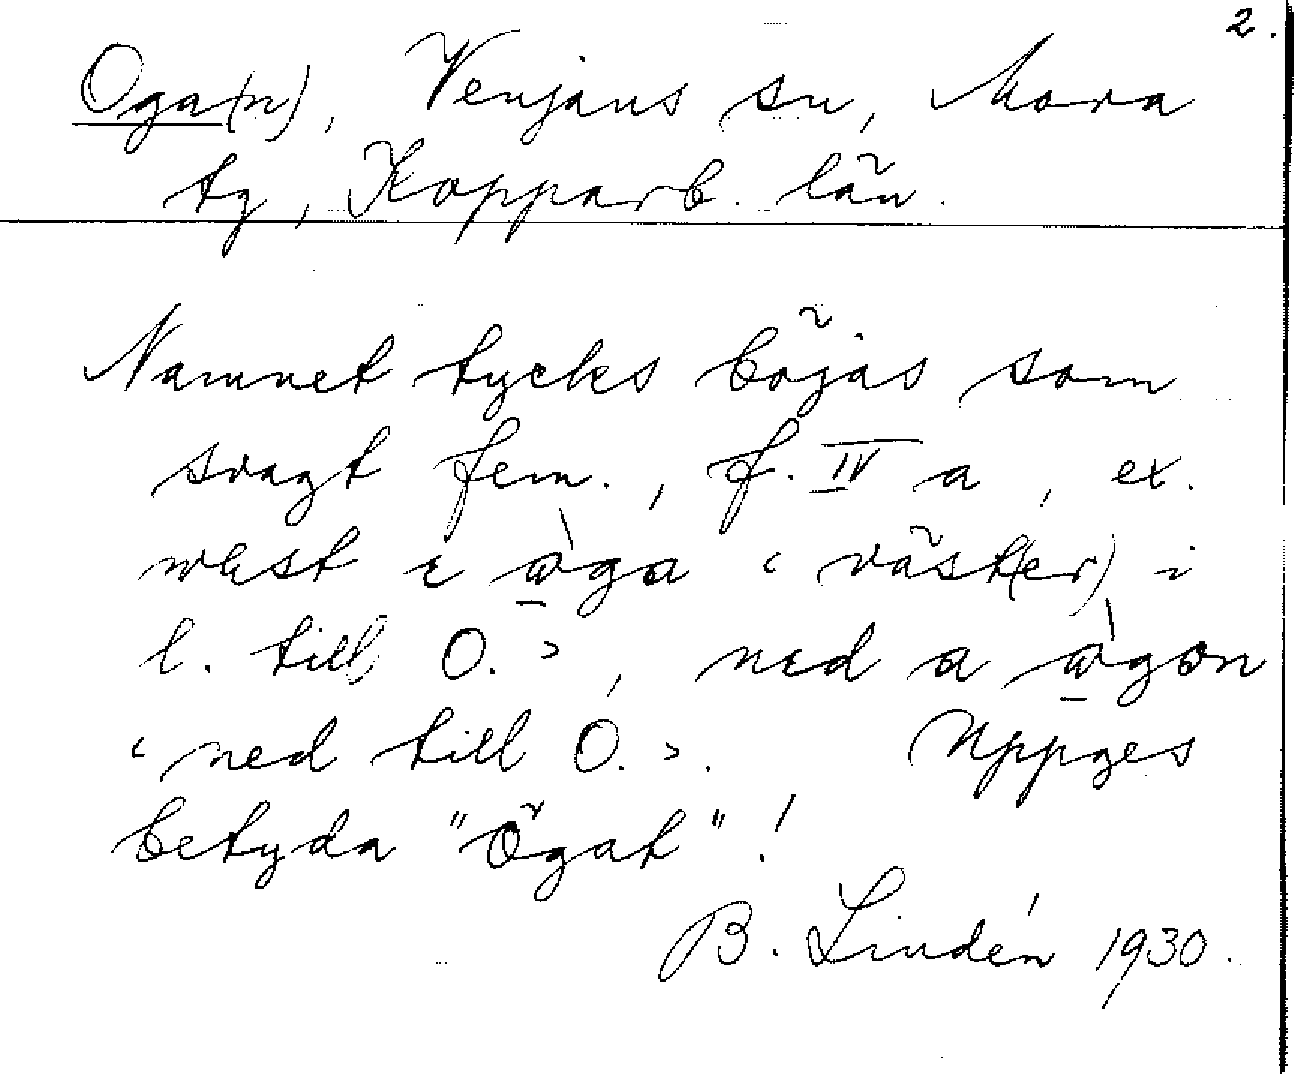 2.
Oga(n), Venjans sn, Mora
tg, Kopparb. län.
Namnet tycks böjas som
svagt fem., f. IV a, ex.
west i ὼga ‹ väst(er) i
l. till O. ›, ned a ὼgon
‹ ned till O. ›. Uppges
betyda "Ögat"!
B. Lindén 1930.